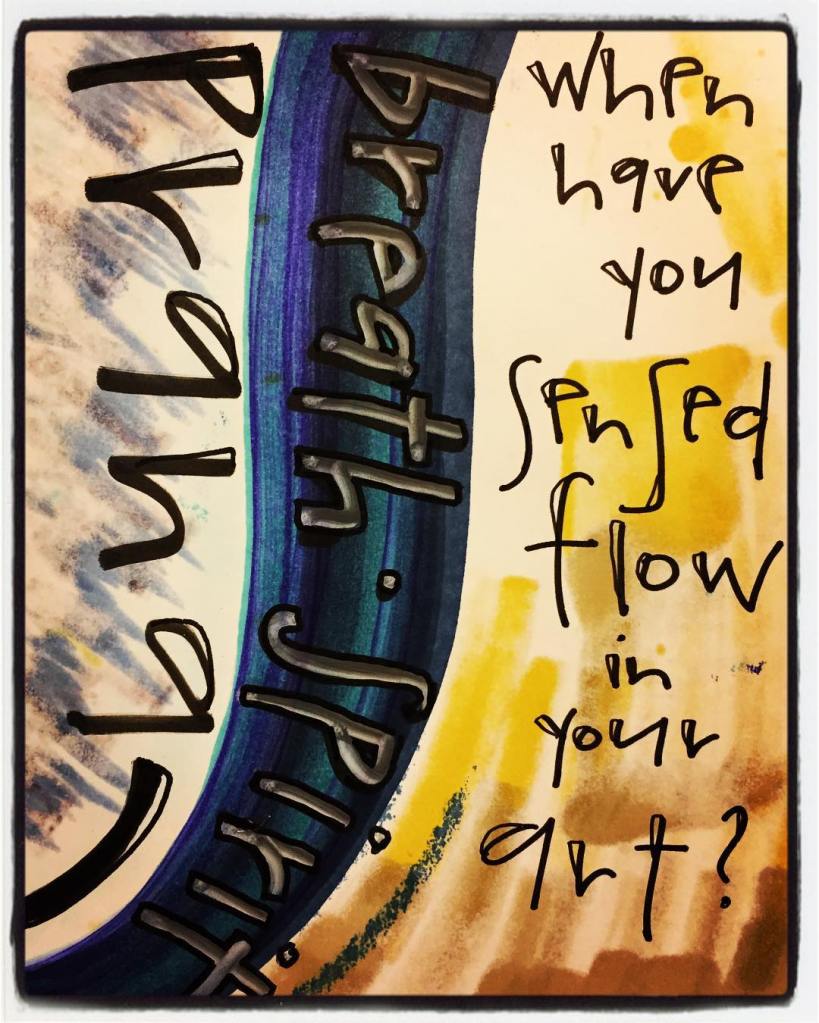 prana
breath · spirit
when
have
you
sensed
flow
in
your
art?